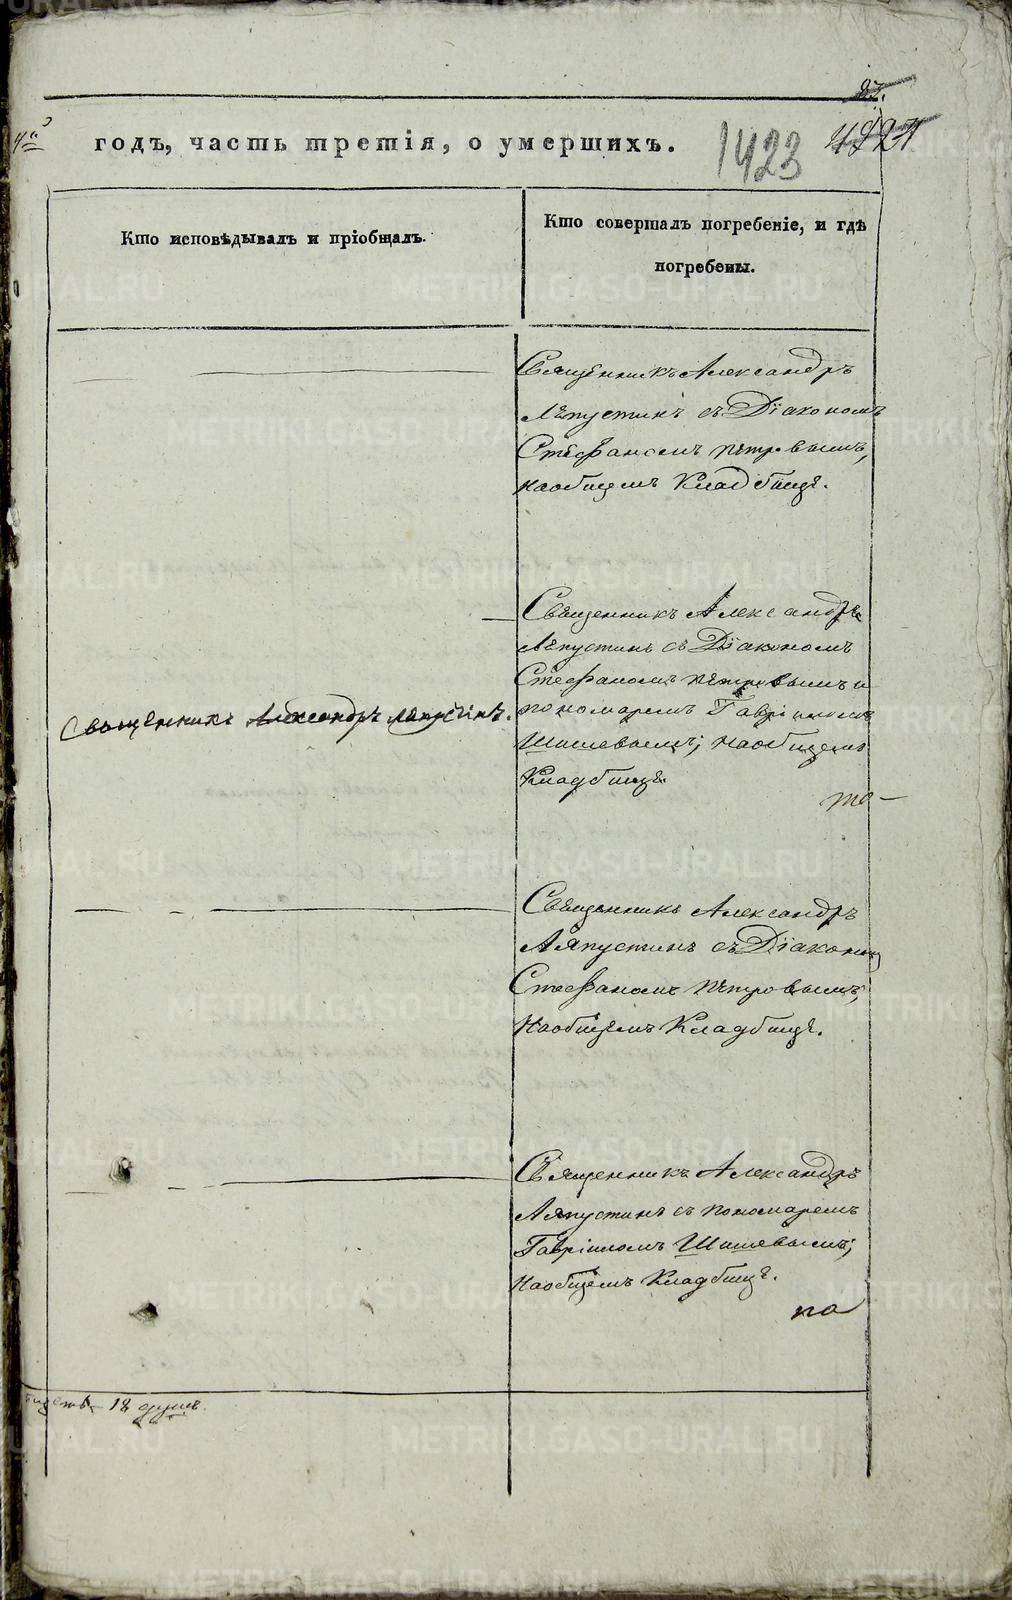 годъ, часть третія, о умершихъ.
1423
Кто исповѣдывалъ и пріобщалъ.
Кто совершалъ погребеніе, и гдѣ
погребены.
Священникъ Александръ
Ляпустинъ съ Діакономъ
Стефаномъ Петровымъ,
на общемъ Кладбищѣ.
Священникъ Александръ
Ляпустинъ съ Діакономъ
Стефаномъ Петровымъ и
пономаремъ Гавріиломъ
Шишевымъ; на общемъ
Кладбищѣ.
Священникъ Александръ Ляпустинъ.
Священникъ Александръ
Ляпустинъ съ Діакономъ
Стефаномъ Петровымъ,
на общемъ Кладбищѣ.
Священникъ Александръ
Ляпустинъ съ пономаремъ
Гавріиломъ Шишевымъ;
на общемъ Кладбищѣ.
по
18 душъ.
METRIKI.GASO-URAL.RU